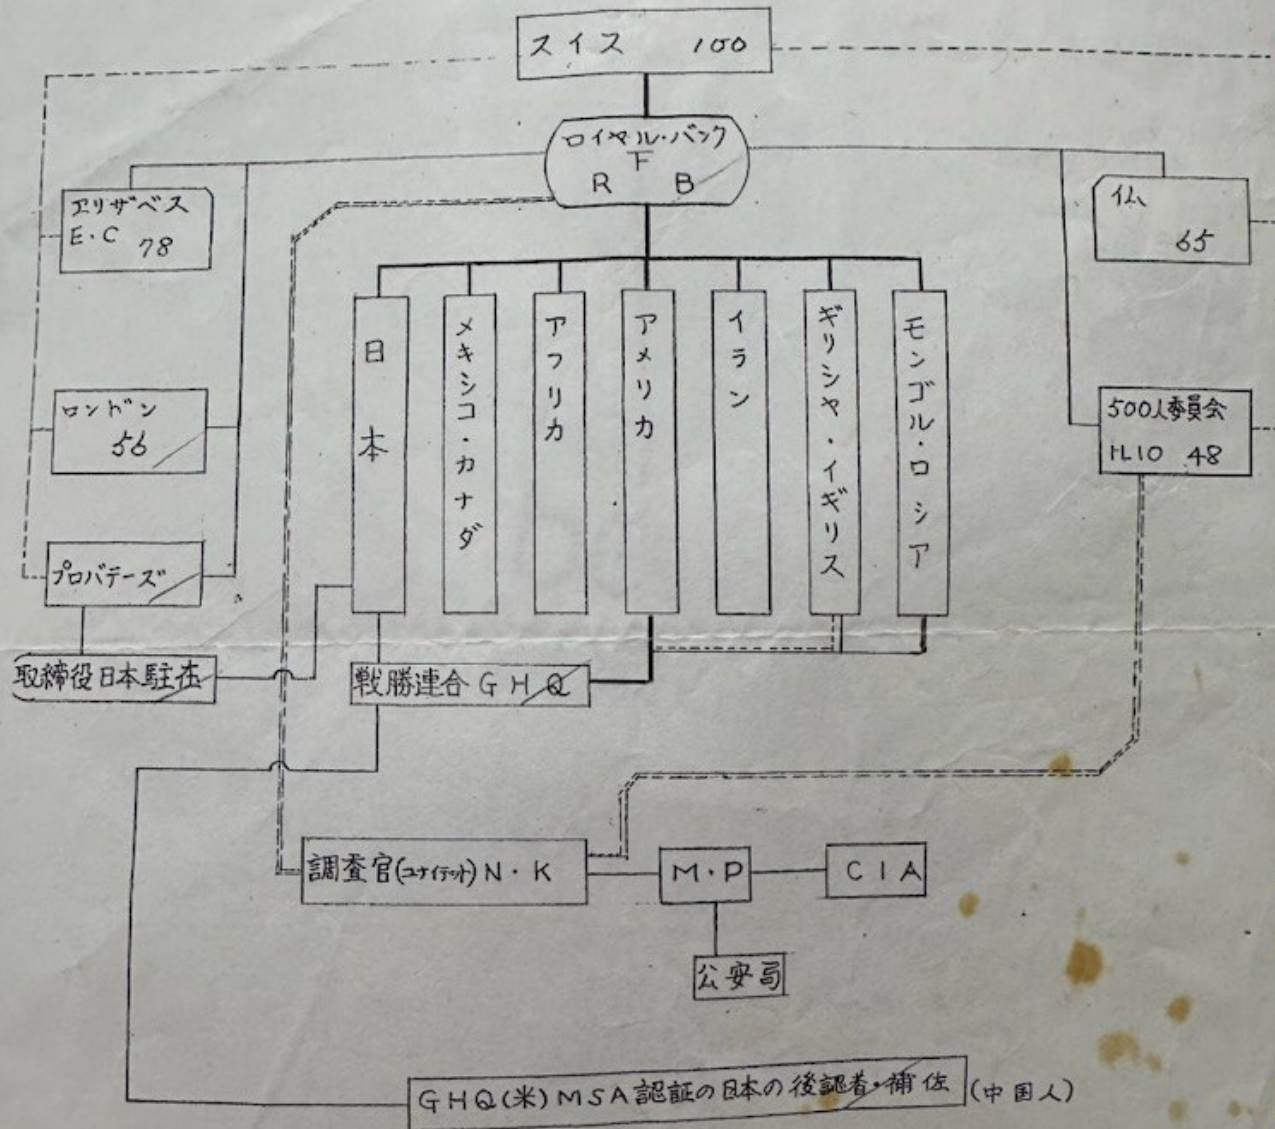 スイス 100
ロイヤル・バンク
F
R B
エリザベス
E・C 78
仏
65
日本
メキシコ・カナダ
アフリカ
アメリカ
イラン
ギリシャ・イギリス
モンゴル・ロシア
ロンドン
56
500人委員会
48
プロバテーズ
取締役日本駐在
戦勝連合GHQ
調査官(ユナイテット)N・K
M・P
CIA
公安局
GHQ(米)MSA認証の日本の後認者・補佐 (中国人)